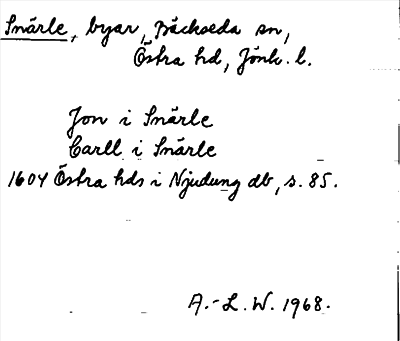 Snärle, byar, Bäckseda sn,
Östra hd, Jönk. l.
Jon i Snärle
Carll i Snärle
1604 Östra hds i Njudung db, s. 85.
A.-L. W. 1968.